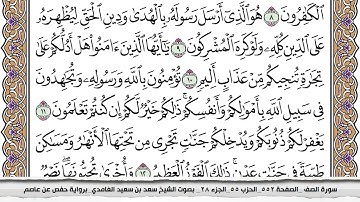 ٱلْكَٰفِرُونَ ٨ هُوَ ٱلَّذِىٓ أَرْسَلَ رَسُولَهُۥ بِٱلْهُدَىٰ وَدِينِ ٱلْحَقِّ لِيُظْهِرَهُۥ
عَلَى ٱلدِّينِ كُلِّهِۦ وَلَوْ كَرِهَ ٱلْمُشْرِكُونَ ٩ يَٰٓأَيُّهَا ٱلَّذِينَ ءَامَنُوا۟ هَلْ أَدُلُّكُمْ عَلَىٰ
تِجَٰرَةٍ تُنجِيكُم مِّنْ عَذَابٍ أَلِيمٍ ١٠ تُؤْمِنُونَ بِٱللَّهِ وَرَسُولِهِۦ وَتُجَٰهِدُونَ
فِى سَبِيلِ ٱللَّهِ بِأَمْوَٰلِكُمْ وَأَنفُسِكُمْ ذَٰلِكُمْ خَيْرٌ لَّكُمْ إِن كُنتُمْ تَعْلَمُونَ ١١
يَغْفِرْ لَكُمْ ذُنُوبَكُمْ وَيُدْخِلْكُمْ جَنَّٰتٍ تَجْرِى مِن تَحْتِهَا ٱلْأَنْهَٰرُ وَمَسَٰكِنَ
طَيِّبَةً فِى جَنَّٰتِ عَدْنٍ ذَٰلِكَ ٱلْفَوْزُ ٱلْعَظِيمُ ١٢ وَأُخْرَىٰ تُحِبُّونَهَا نَصْرٌ
سورة الصف _ الصفحة ٥٥٢ _ الحزب ٥٥ _ الجزء ٢٨ _ بصوت الشيخ سعد بن سعيد الغامدي _ برواية حفص عن عاصم